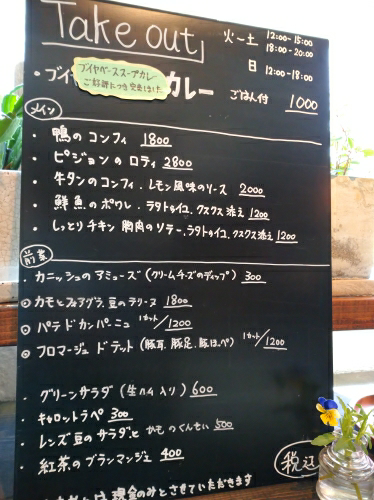 Take out
火ー土 12:00-15:00
18:00-20:00
日 12:00-18:00
ブイヤベーススープカレー
ご好評につき完売しました
・ブイヤ カレー ごはん付 1000
メイン
・鴨のコンフィ 1800
・ピジョンのロティ 2800
・牛タンのコンフィ.レモン風味のソース 2000
・鮮魚のポワレ.ラタトゥイユ.クスクス添え 1200
・しっとりチキン胸肉のソテー.ラタトゥイユ.クスクス添え 1200
前菜
・カニッシュのアミューズ(クリームチーズのディップ) 300
◎カモとフォアグラ.豆のテリーヌ 1800
◎パテドカンパーニュ 1カット/1200
◎フロマージュドテット(豚耳.豚足.豚ほっぺ) 1カット/1200
・グリーンサラダ(生ハム入り) 600
・キャロットラペ 300
・レンズ豆のサラダと かものくんせい 500
・紅茶のブランマンジェ 400
税込
現金のみとさせていただきます